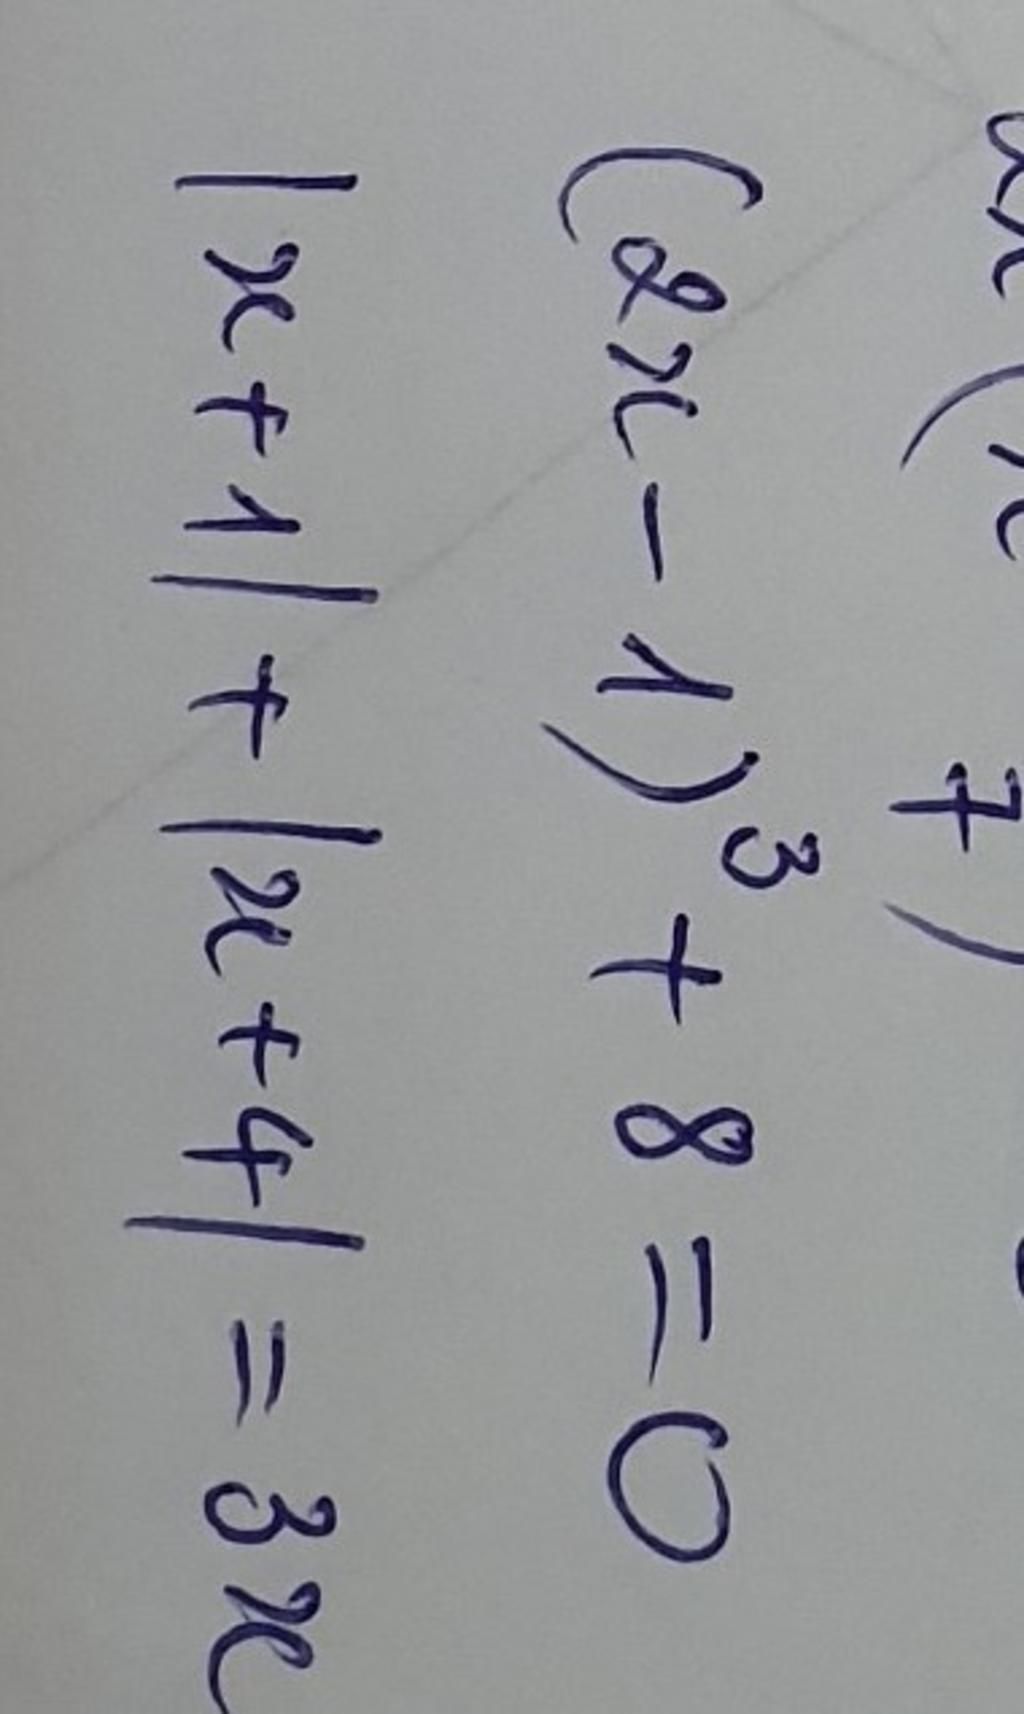 (2x - 1)³ + 8 = 0
|x + 1| + |x + 4| = 3x